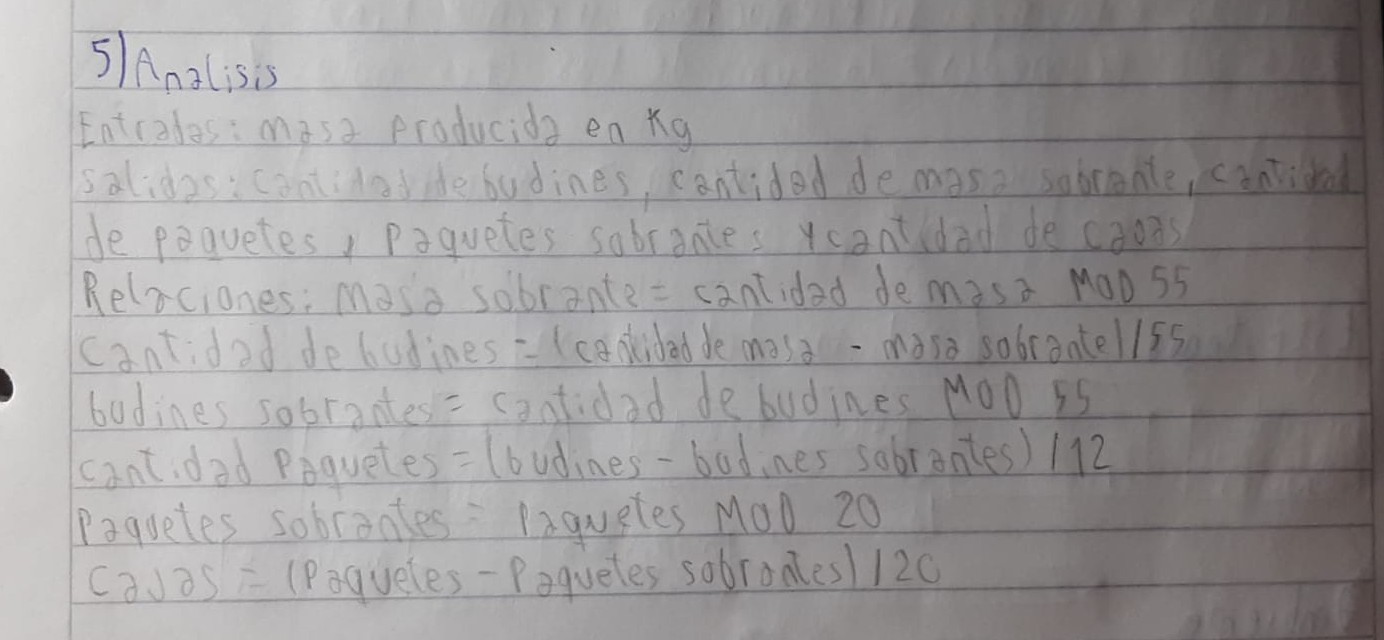 5) Analisis
Entradas: masa producida en Kg
salidas: cantidad de budines, cantidad de masa sobrante, cantidad
de paquetes, paquetes sobrantes y cantidad de cajas
Relaciones: masa sobrante = cantidad de masa MOD 55
cantidad de budines = (cantidad de masa - masa sobrante) / 55
budines sobrantes = cantidad de budines MOD 55
cantidad paquetes = (budines - budines sobrantes) / 12
Paquetes sobrantes = Paquetes MOD 20
Cajas = (Paquetes - Paquetes sobrantes) / 20